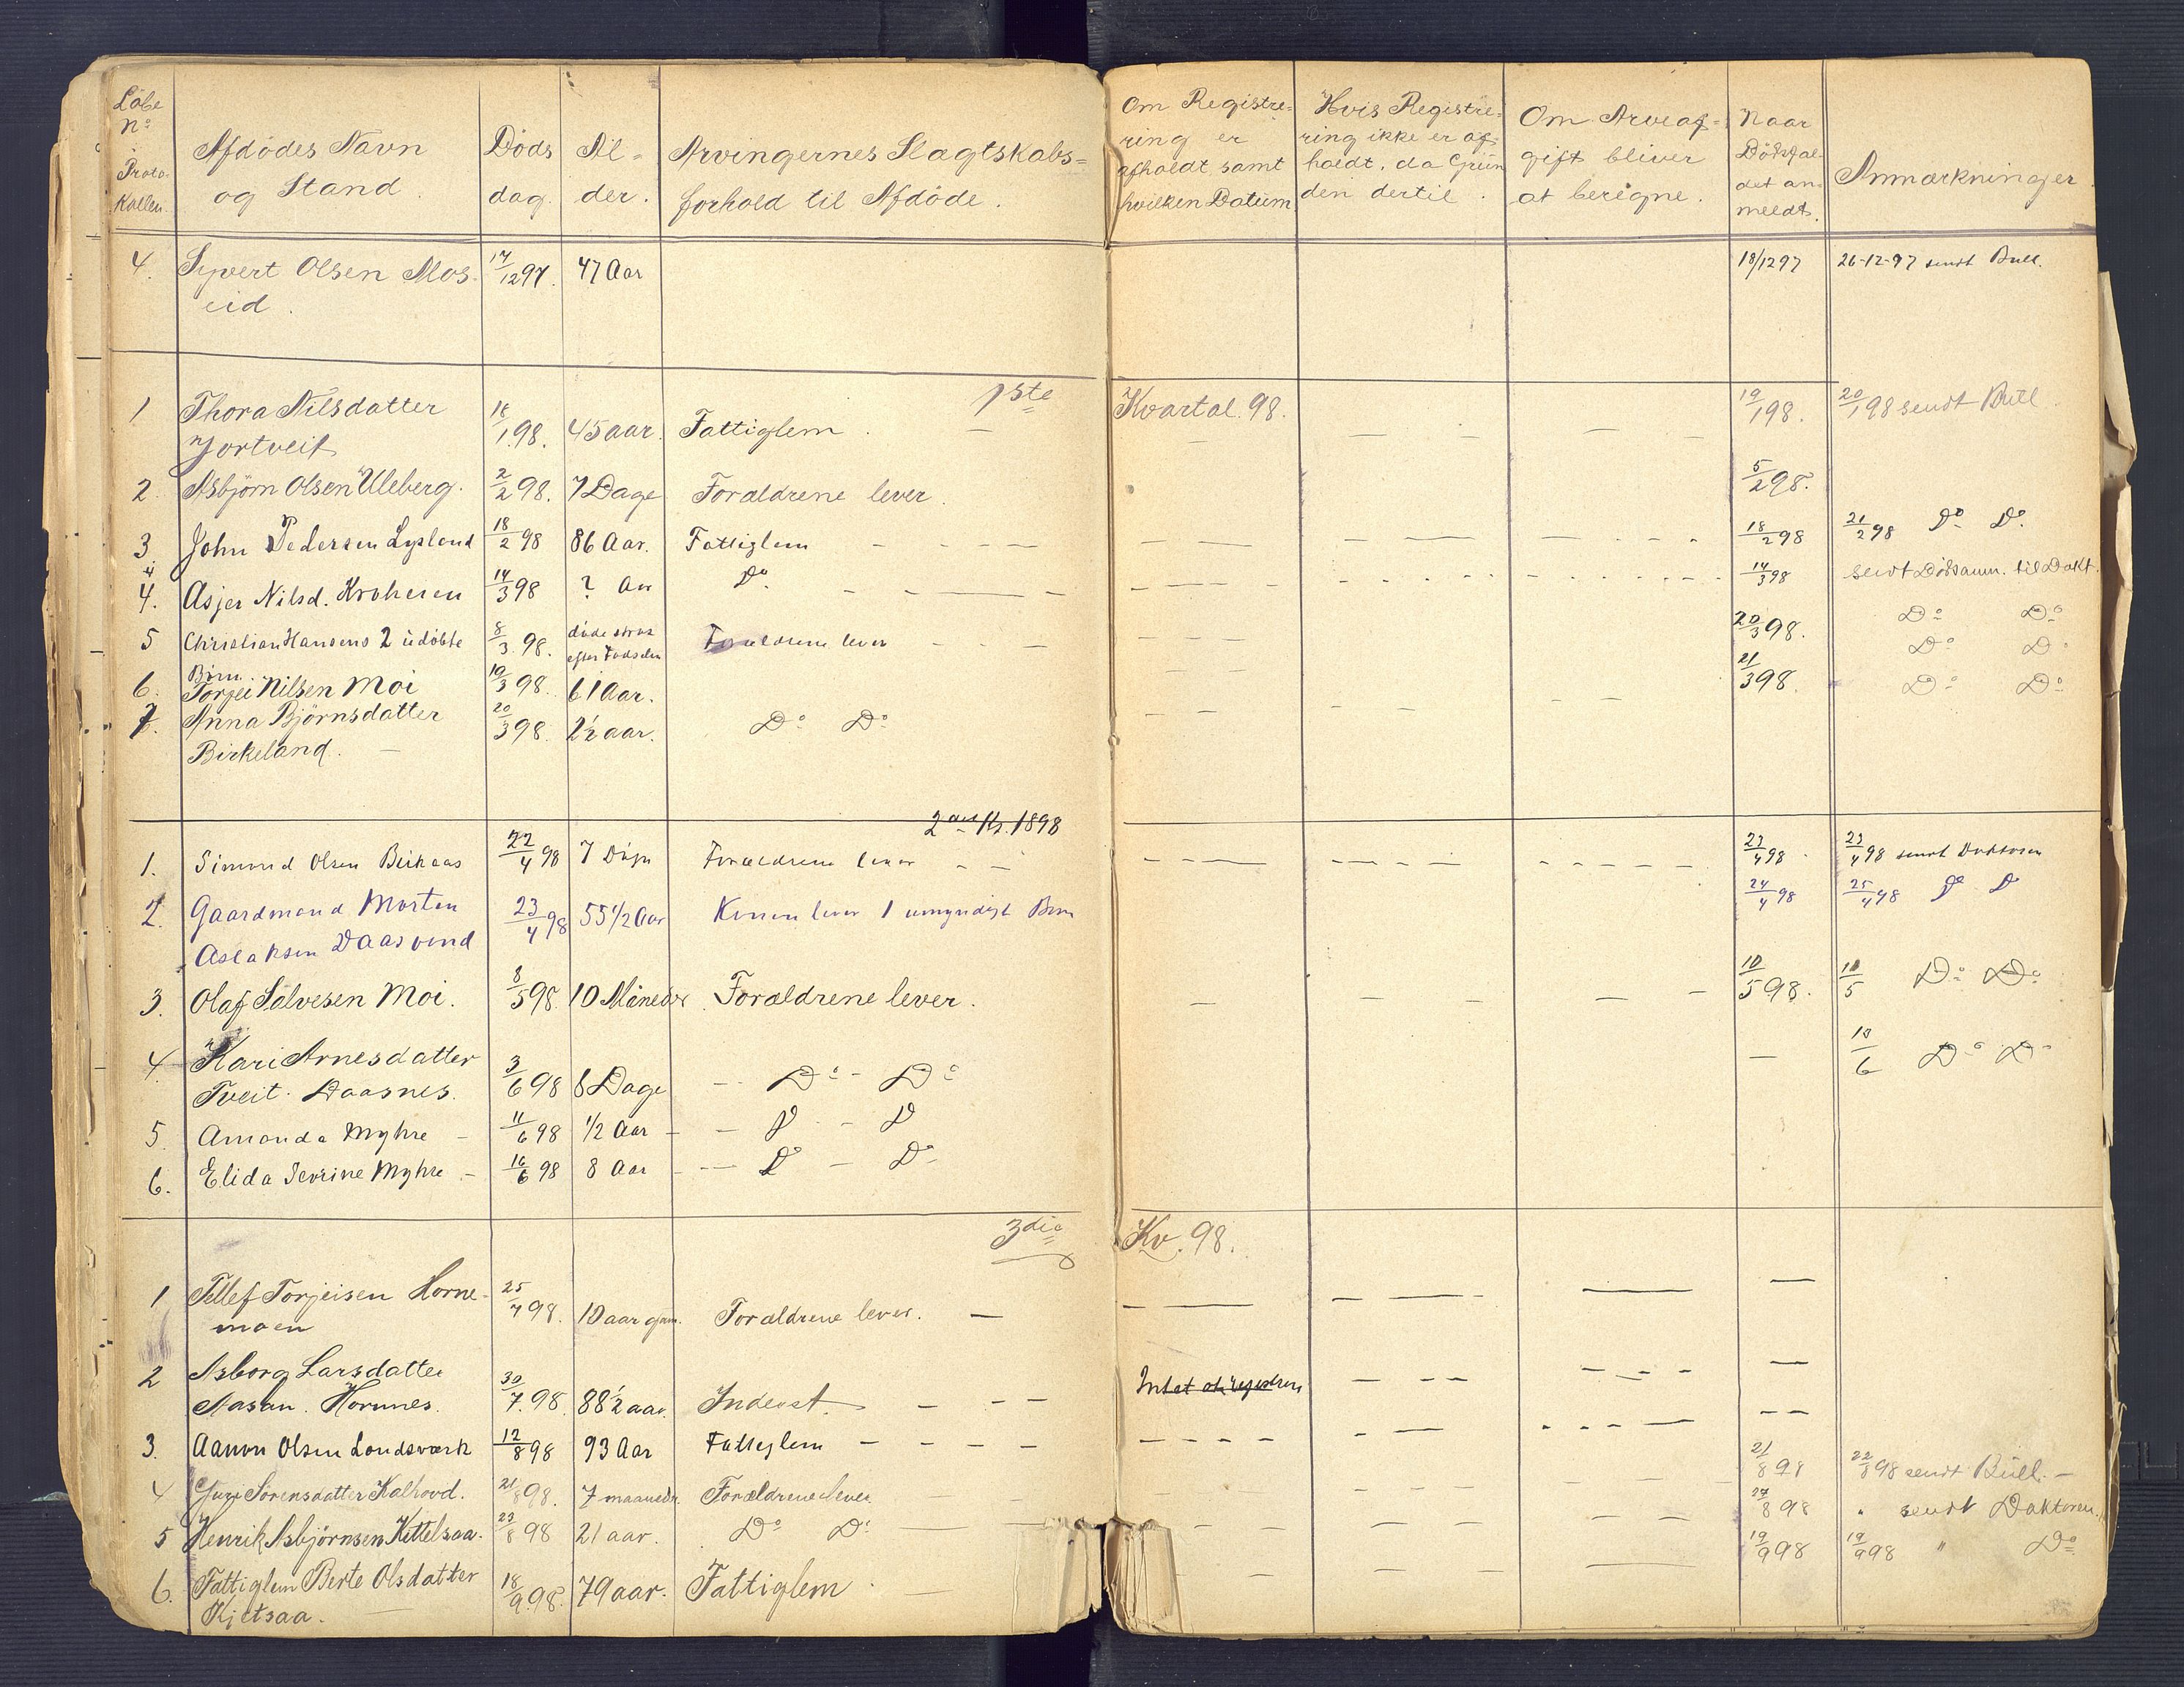 Löbe
No
Proto-
kollen.
Afdödes Navn
og Stand.
Döds
dag.
Al-
der.
Arvingernes Slagtskabs-
forhold til Afdöde.
Om Registre-
ring er
afholdt samt
hvilken Datum
Hvis Registre-
ring ikke er af-
holdt, da Grun
den dertil.
Om Arveaf-
gift bliver
at beregne.
Naar
Dödsfal-
det an-
meldt.
Anmærkninger.
4. Syvert Olsen Mos- 17/12 97. 47 Aar 18/12 97 26-12-97 sendt Bull.
eid.
1ste Kvartal. 98.
1 Thora Nilsdatter 16/1 98. 45 aar. Fattiglem. — 19/1 98. 20/1 98 sendt Bull.
Jortveit
2. Asbjörn Olsen Uleberg. 2/2 98. 7 Dage Forældrene lever. 5/2 98.
3. John Pedersen Lysland 18/2 98 86 Aar. Fattiglem 18/2 98 21/2 98 Do Do
4. Asjer Nilsd. Kroheien 14/3 98 ? Aar Do 14/3 98 sendt Dödsanm. til Dokt.
5 Christian Hansens 2 udöbte 8/3 98. döde strax Forældrene lever 20/3 98. Do Do
Börn. efter Fødselen Do Do
6. Torjei Nilsen Moi 19/3 98. 61 Aar. 21/3 98. Do Do
7. Anna Björnsdatter 20/3 98. 2½ aar. Do Do
Birkeland. —
2det Kv. 1898
1. Simund Olsen Birkaas 22/4 98 7 Døgn Forældrene lever 23/4 98 23/4 98 sendt Doktoren
2. Gaardmand Morten 23/4 98 55 1/2 Aar Konen lever 1 umyndigt Barn 24/4 98 25/4 98 Do Do
Aslaksen Daasvand
3. Olaf Salvesen Moi. 8/5 98 10 Måneder Forældrene lever. 10/5 98. 10/5 Do Do
4. Kari Arnesdatter 3/6 98 8 Dage Do - Do — 10/6 Do Do
Tveit. Daasnes.
5. Amanda Myhre — 11/6 98 1/2 Aar — D — D
6. Elida Severine Myhre — 16/6 98 8 Aar — Do — Do
3die Kv. 98.
1 Tellef Torjeisen Horne- 25/7 98. 10 aar gam. Forældrene lever. —
moen
2 Asborg Larsdatter
Aasan. Hornnes. 30/7. 98. 88½ aar. Inderst. Intet at registrere
3. Aanon Olsen Landsværk 12/8 98 93 Aar Fattiglem
4 Guri Sörensdatter Kalhovd. 21/8 98. 7 maaneder. Forældrene lever. 21/8 98 22/8 98 sendt Bull. —
5 Henrik Asbjörnsen Kittelsaa. 23/8 98 21 aar. Do Do 27/8 98 " sendt Doktoren.
6. Fattiglem Berte Olsdatter 18/9. 98. 79 aar. Fattiglem. 19/9 98 19/9 98 " Do
Kjetsaa. —